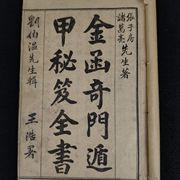 張子房
諸葛亮 先生著
金函奇門遁
甲秘笈全書
劉伯温先生輯
王浩署